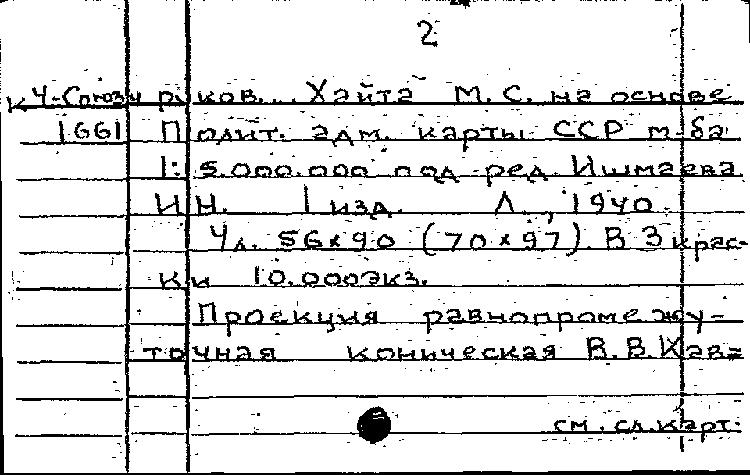 2
К Ч-Союз
1661
руков... Хайта М.С. на основе
Полит. адм. карты ССР м-ба
1: 5.000.000 под ред. Ишмаева
И Н. 1 изд. Л., 1940.
4 л. 56×90 (70×97). В 3 крас-
ки 10.000 экз.
Проекция равнопромежу-
точная коническая В.В. Кав=
см. сл. карт.